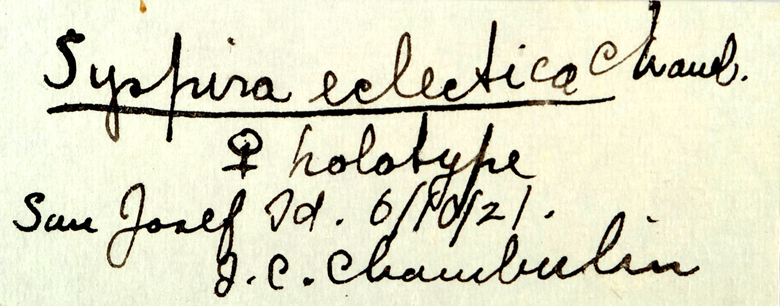 Syspira eclectica Chamb.
♀ holotype
San Josef Id. 6/10/21.
J. C. Chamberlin